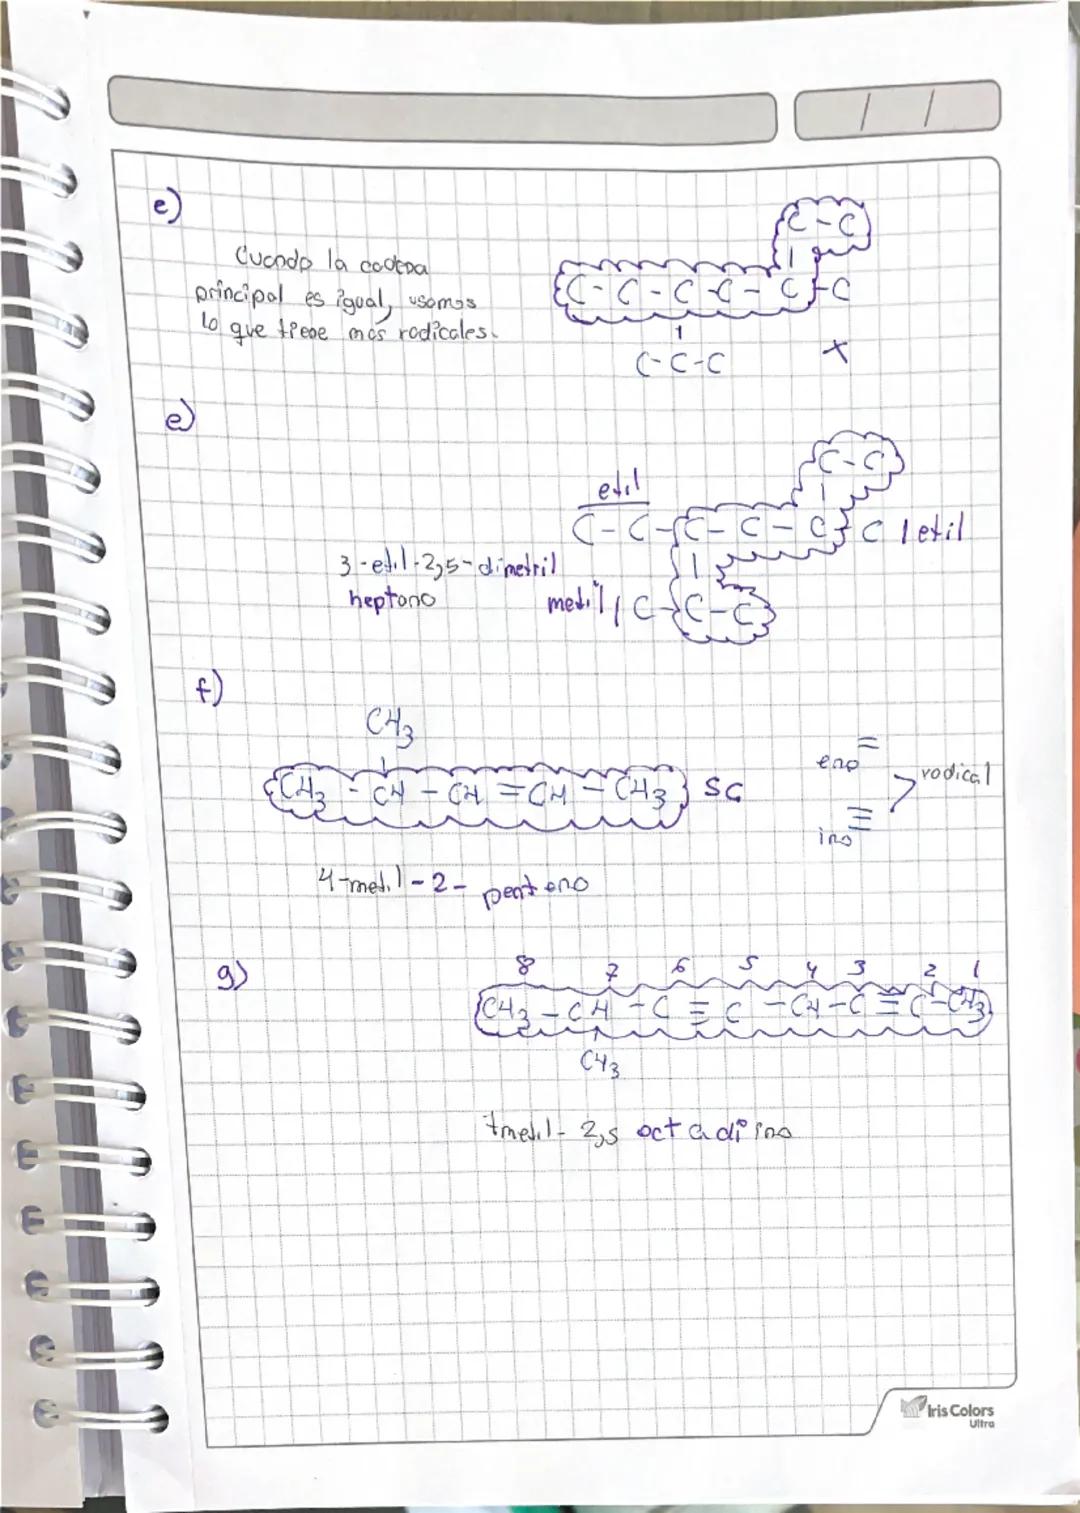 e)
Cuando la cadena
principal es igual, usamos
lo que tiene mas radicales.
C-C
|
C-C-C-C-C-C
|
C-C-C
x
e)
C-C
|
etil
C-C-C-C-C-C | etil
|
3-etil-2,5-dimetril
heptano
metil | C-C-C
f)
CH3
|
CH3 - CH - CH = CH - CH3 5C
eno =
ino ≡
> radical
4-metil-2- penteno
g)
8 7 6 5 4 3 2 1
CH3 - CH - C ≡ C - CH - C ≡ C - CH3
|
CH3
7metil- 2,5 octadiino
Iris Colors
Ultra